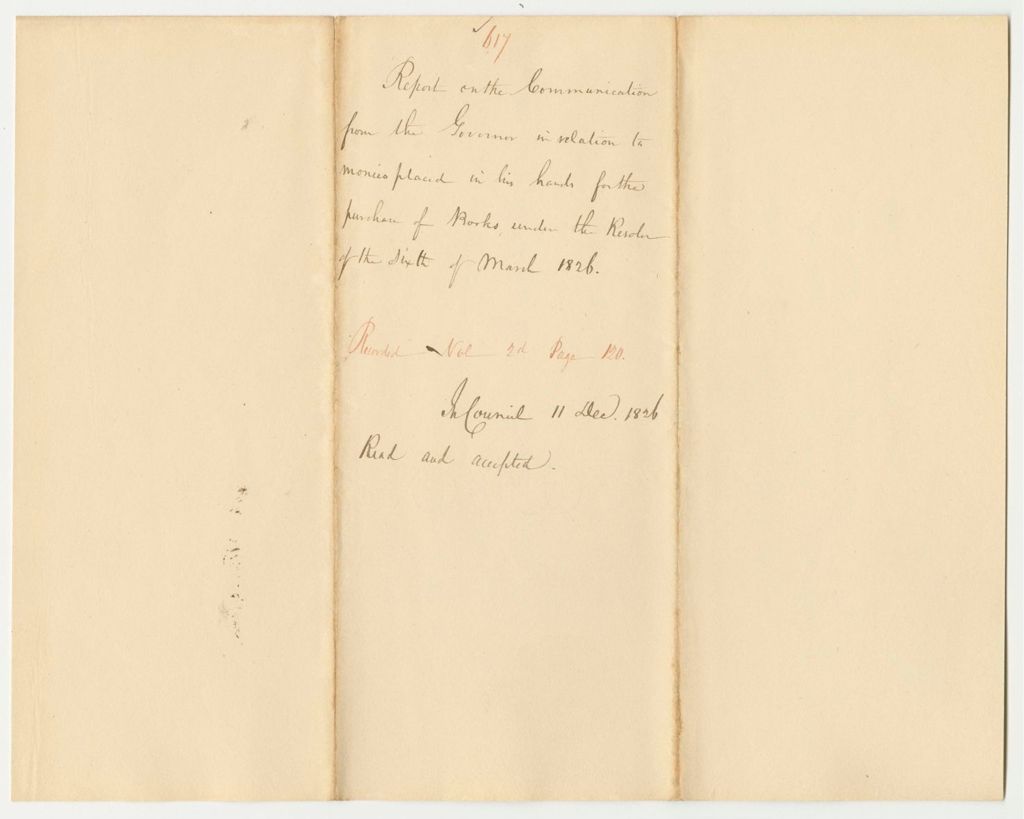 617
Report on the Communication
from the Governor in relation to
monies placed in his hands for the
purchase of Books, under the Resolve
of the Sixth of March 1826.
Recorded Vol 2d Page 120.
In Council 11 Dec. 1826
Read and accepted.